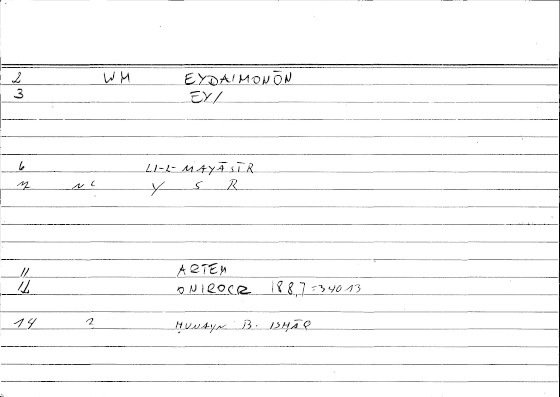 2 WM EYDAIMONŌN
3 EY/
6 LI-L-MAYĀSĪR
Y S R
11 ARTEM
12 ONIROCR 188,7=340 13
14 2 ḤUNAYN B. ISḤĀQ